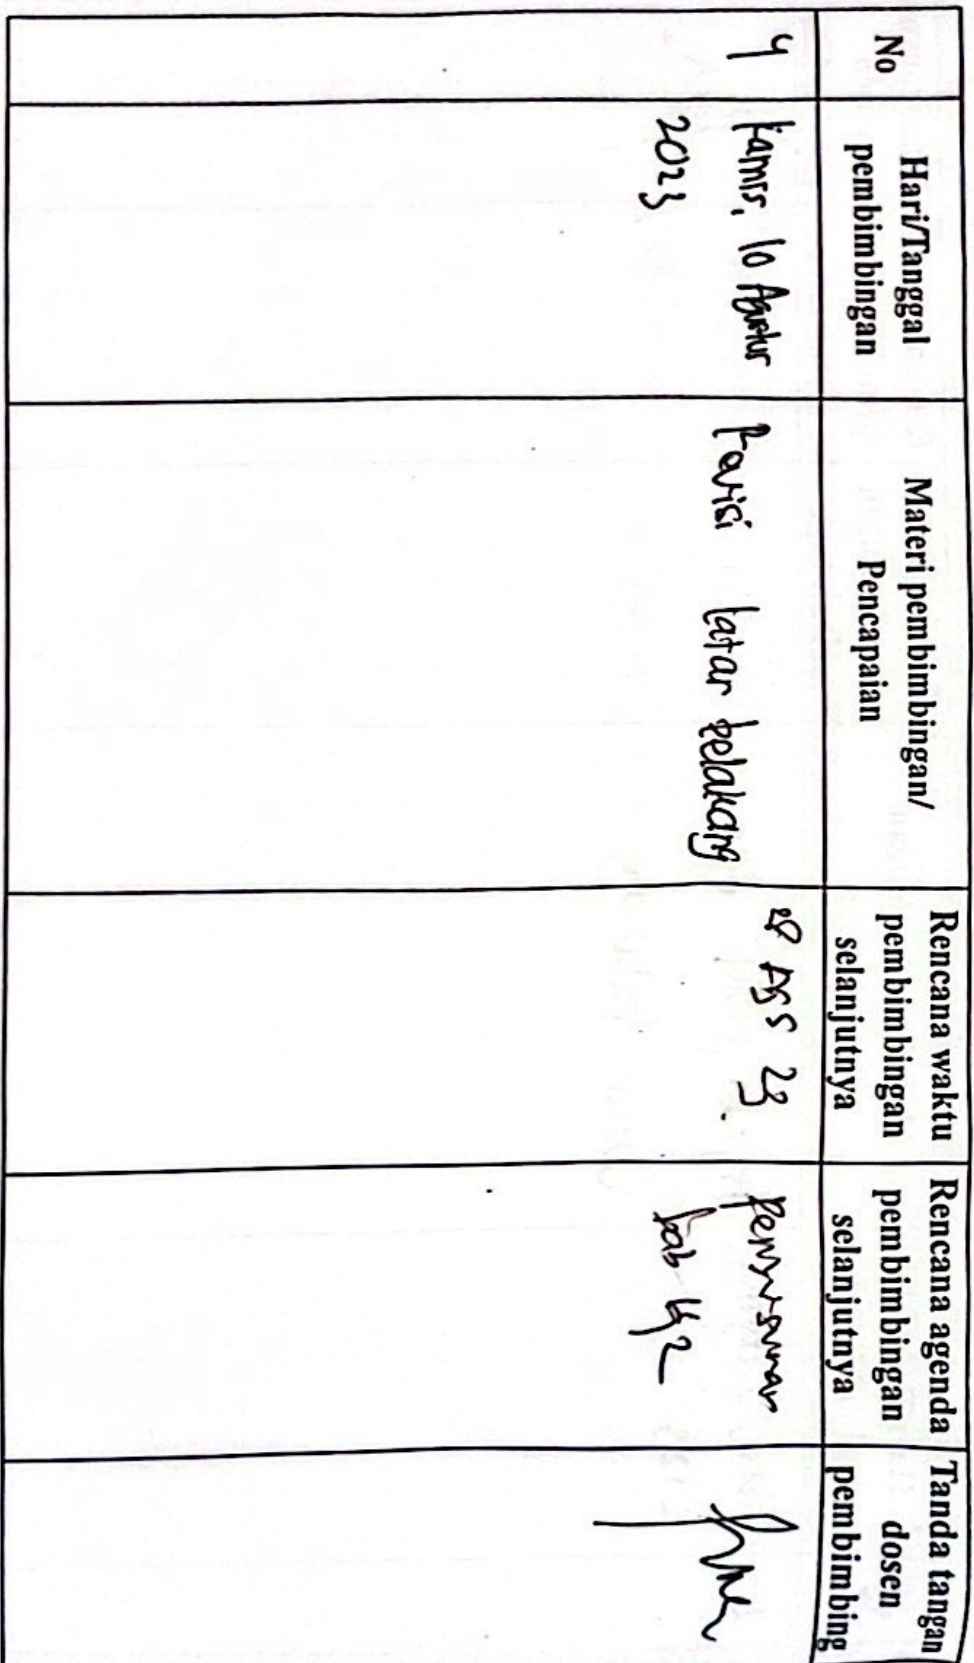 No
Hari/Tanggal
pembimbingan
Materi pembimbingan/
Pencapaian
Rencana waktu
pembimbingan
selanjutnya
Rencana agenda
pembimbingan
selanjutnya
Tanda tangan
dosen
pembimbing
4
Kamis, 10 Agustus
2023
Revisi latar belakang
Ags 23.
Penyusunan
bab 2